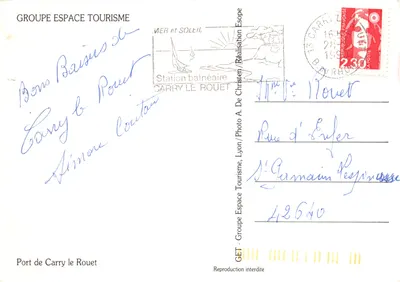 GROUPE ESPACE TOURISME
Bons Baisers de
Carry le Rouet
Simone
Port de Carry le Rouet
GET - Groupe Espace Tourisme, Lyon / Photo A. De / Réalisation Esope
Reproduction interdite
MER et SOLEIL
Station balnéaire
CARRY LE ROUET
13 CARRY
2,30
Rouet
Rue d'Enfer
St Germain Lespinasse
42640